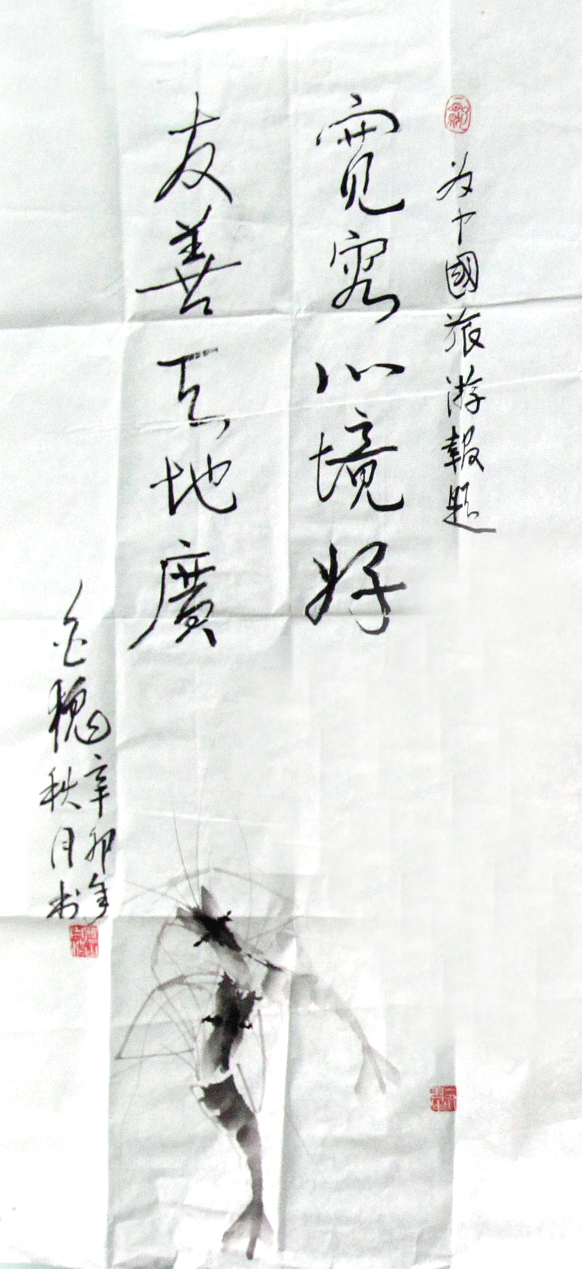 为中國旅游報題
寬容心境好
友善天地廣
辛卯年
秋月书